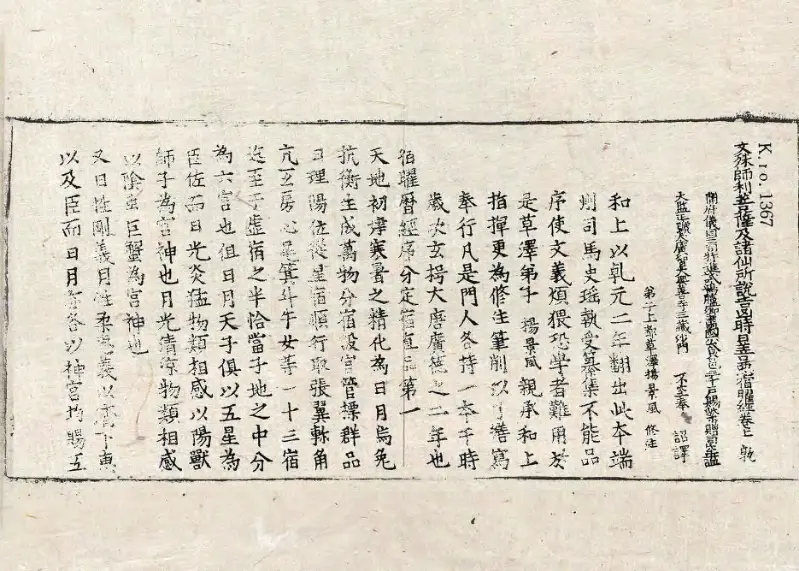 K. ro. 1367
文殊師利菩薩及諸仙所說吉凶時日善惡宿曜經卷上 執
開府儀同三司特進試鴻臚卿肅國公食邑三千戶賜紫贈司空謚
大鑒正號大廣智大興善寺三藏沙門 不空奉 詔譯
弟子上都草澤楊景風 修注
和上以乹元二年翻出此本端
州司馬史瑤執受纂集不能品
序使文義煩猥恐學者難用於
是草澤弟子 楊景風親承和上
指揮更為修注筆削以了繕寫
奉行凡是門人各持一本于時
歲次玄枵大唐廣德之二年也
宿曜曆經序分定宿直品第一
天地初建寒暑之精化為日月烏兔
抗衡生成萬物分宿設宮管摽群品
日理陽位從星宿順行取張翼軫角
亢氐房心尾箕斗牛女等一十三宿
迄至于虛宿之半恰當子地之中分
為六宮也但日月天子俱以五星為
臣佐而日光炎猛物類相感以陽獸
師子為宮神也月光清凉物類相感
以陰虫巨蟹為宮神也
又日性剛義月性柔惠義以濟下惠
以及臣而日月亦各以神宮均賜五